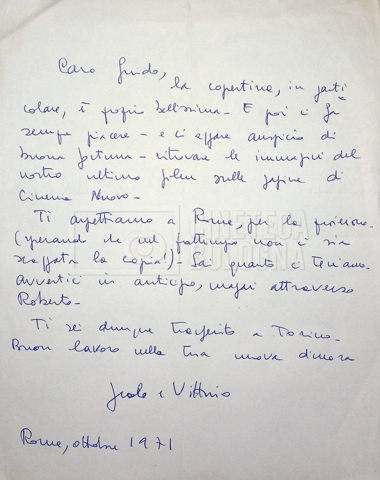 Caro Guido,
la copertina, in parti
colare, è proprio bellissima - E poi ci fa
sempre piacere - e ci appare auspicio di
buona fortuna - ritrovare le immagini del
nostro ultimo film sulle pagine di
Cinema Nuovo -
Ti aspettiamo a Roma per la proiezione
(sperando che nel frattempo non ci sia
scappata la copia!) - Sai quanto ci teniamo -
avvertici in anticipo, magari attraverso
Roberto -
Ti sei dunque trasferito a Torino -
Buon lavoro nella tua nuova dimora
Paolo e Vittorio
Roma, ottobre 1971
CINETECA
BOLOGNA